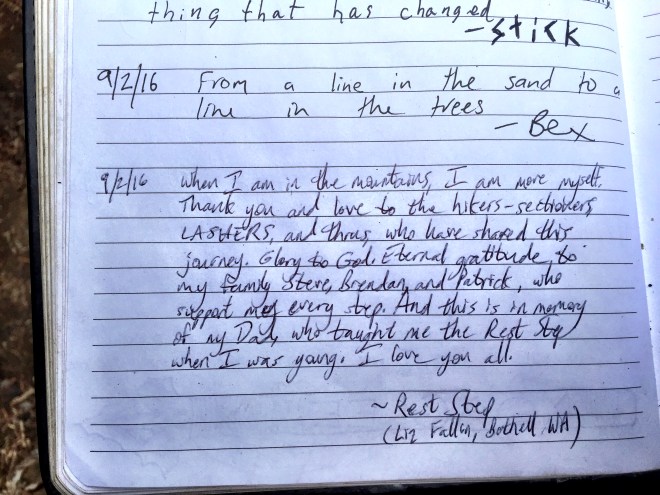 thing that has changed
- Stick
9/2/16 From a line in the sand to a
line in the trees
- Bex
9/2/16 When I am in the mountains, I am more myself.
Thank you and love to the hikers - sectioners,
LASHERS, and thrus, who have shared this
journey. Glory to God. Eternal gratitude to
my family Steve, Brendan, and Patrick, who
support me every step. And this is in memory
of my Dad, who taught me the Rest Step
when I was young. I love you all.
~ Rest Step
(Liz Fallin, Bothell, WA)